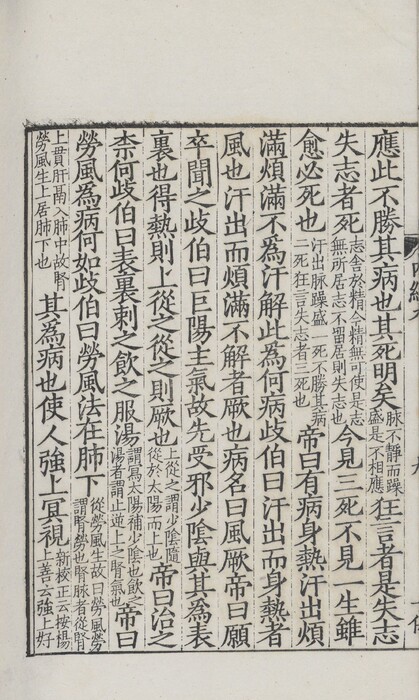 應此不勝其病也其死明矣脉不靜而躁盛是不相應狂言者是失志
失志者死志舍於精今精無可使是志無所居志不留居則失志也今見三死不見一生雖
愈必死也汗出脉躁盛一死不勝其病二死狂言失志者三死也帝曰有病身熱汗出煩
滿煩滿不為汗解此為何病歧伯曰汗出而身熱者
風也汗出而煩滿不解者厥也病名曰風厥帝曰願
卒聞之歧伯曰巨陽主氣故先受邪少陰與其為表
裏也得熱則上從之從之則厥也上從之謂少陰隨從於太陽而上也帝曰治之
柰何歧伯曰表裏刺之飲之服湯謂寫太陽補少陰也飲之湯者謂止逆上之腎氣也帝曰
勞風為病何如歧伯曰勞風法在肺下從勞風生故曰勞風勞謂腎勞也腎脉者從腎
上貫肝鬲入肺中故腎勞風生上居肺下也其為病也使人強上冥視新校正云按楊上善云強上好